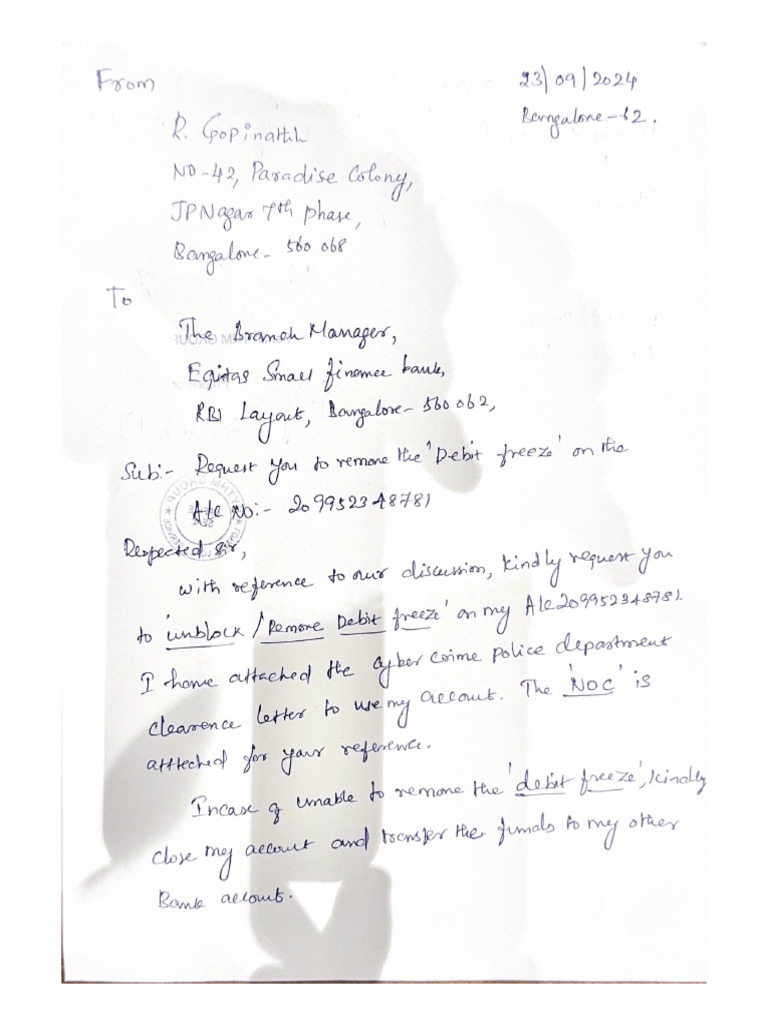 From
23/09/2024
Bangalore-62.
R. Gopinathh
NO-42, Paradise Colony,
JPNagar 7th phase,
Bangalore- 560 068
To
The Branch Manager,
Equitas Small finance bank,
RBI Layout, Bangalore- 560 062,
Sub:- Request you to remove the 'Debit freeze' on the
A/c No:- 209952348781
Respected Sir,
with reference to our discussion, kindly request you
to 'unblock / Remove Debit freeze' on my A/c 209952348781.
I have attached the cyber crime police department
clearence letter to use my account. The 'NOC' is
atteched for your reference.
Incase of unable to remove the 'debit freeze', kindly
close my account and transfer the funds to my other
Bank account.